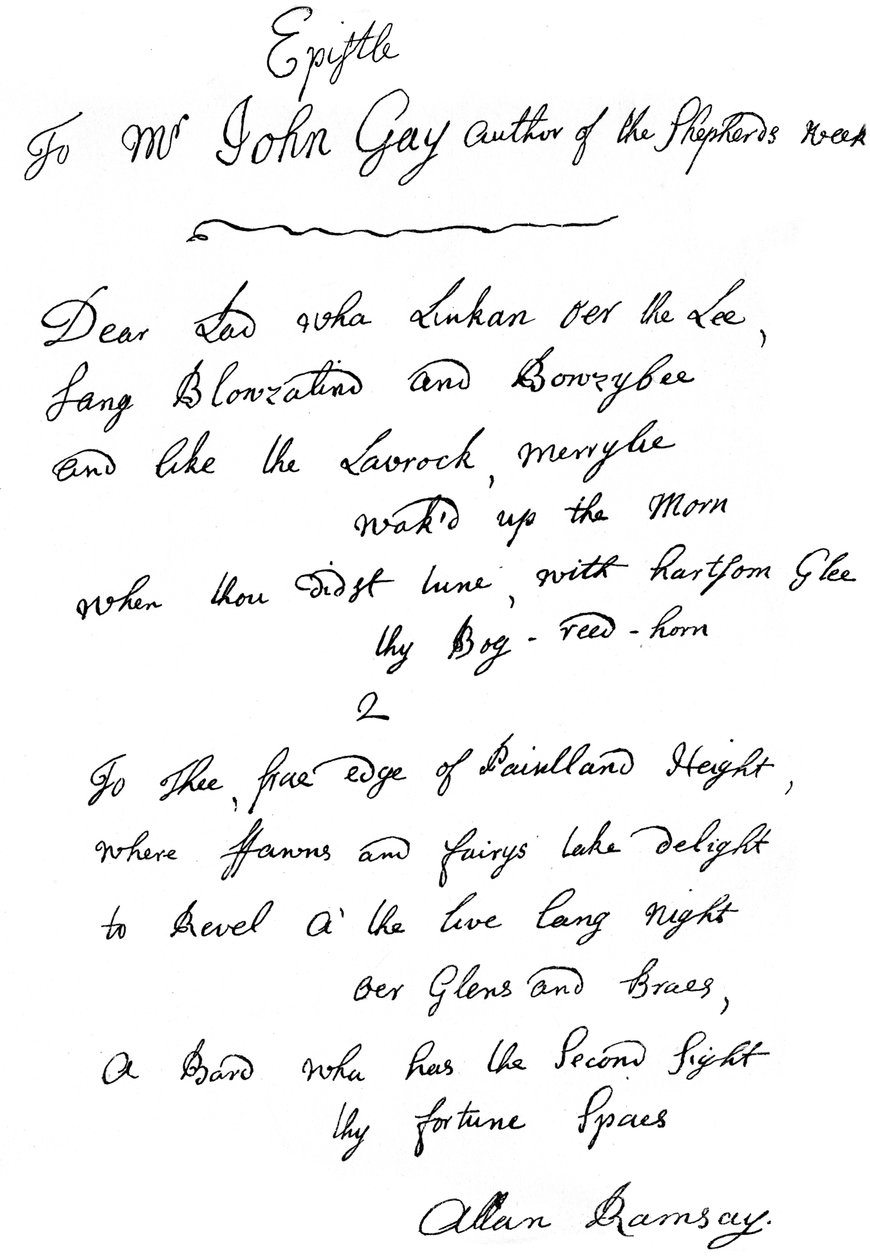 Epistle
To Mr John Gay author of the Shepherds week
Dear Lad wha Linkan oer the Lee,
Sang Blowzalind and Bowzybee
and like the Lavrock, merrylie
wak'd up the Morn
when thou didst tune, with hartsom Glee
thy Bog-reed-horn
2
To Thee, frae edge of Pentland Height,
where ffawns and fairys take delight
to Revel a' the live lang night
oer Glens and Braes,
a Bard wha has the Second Sight
thy fortune Spaes
Allan Ramsay.